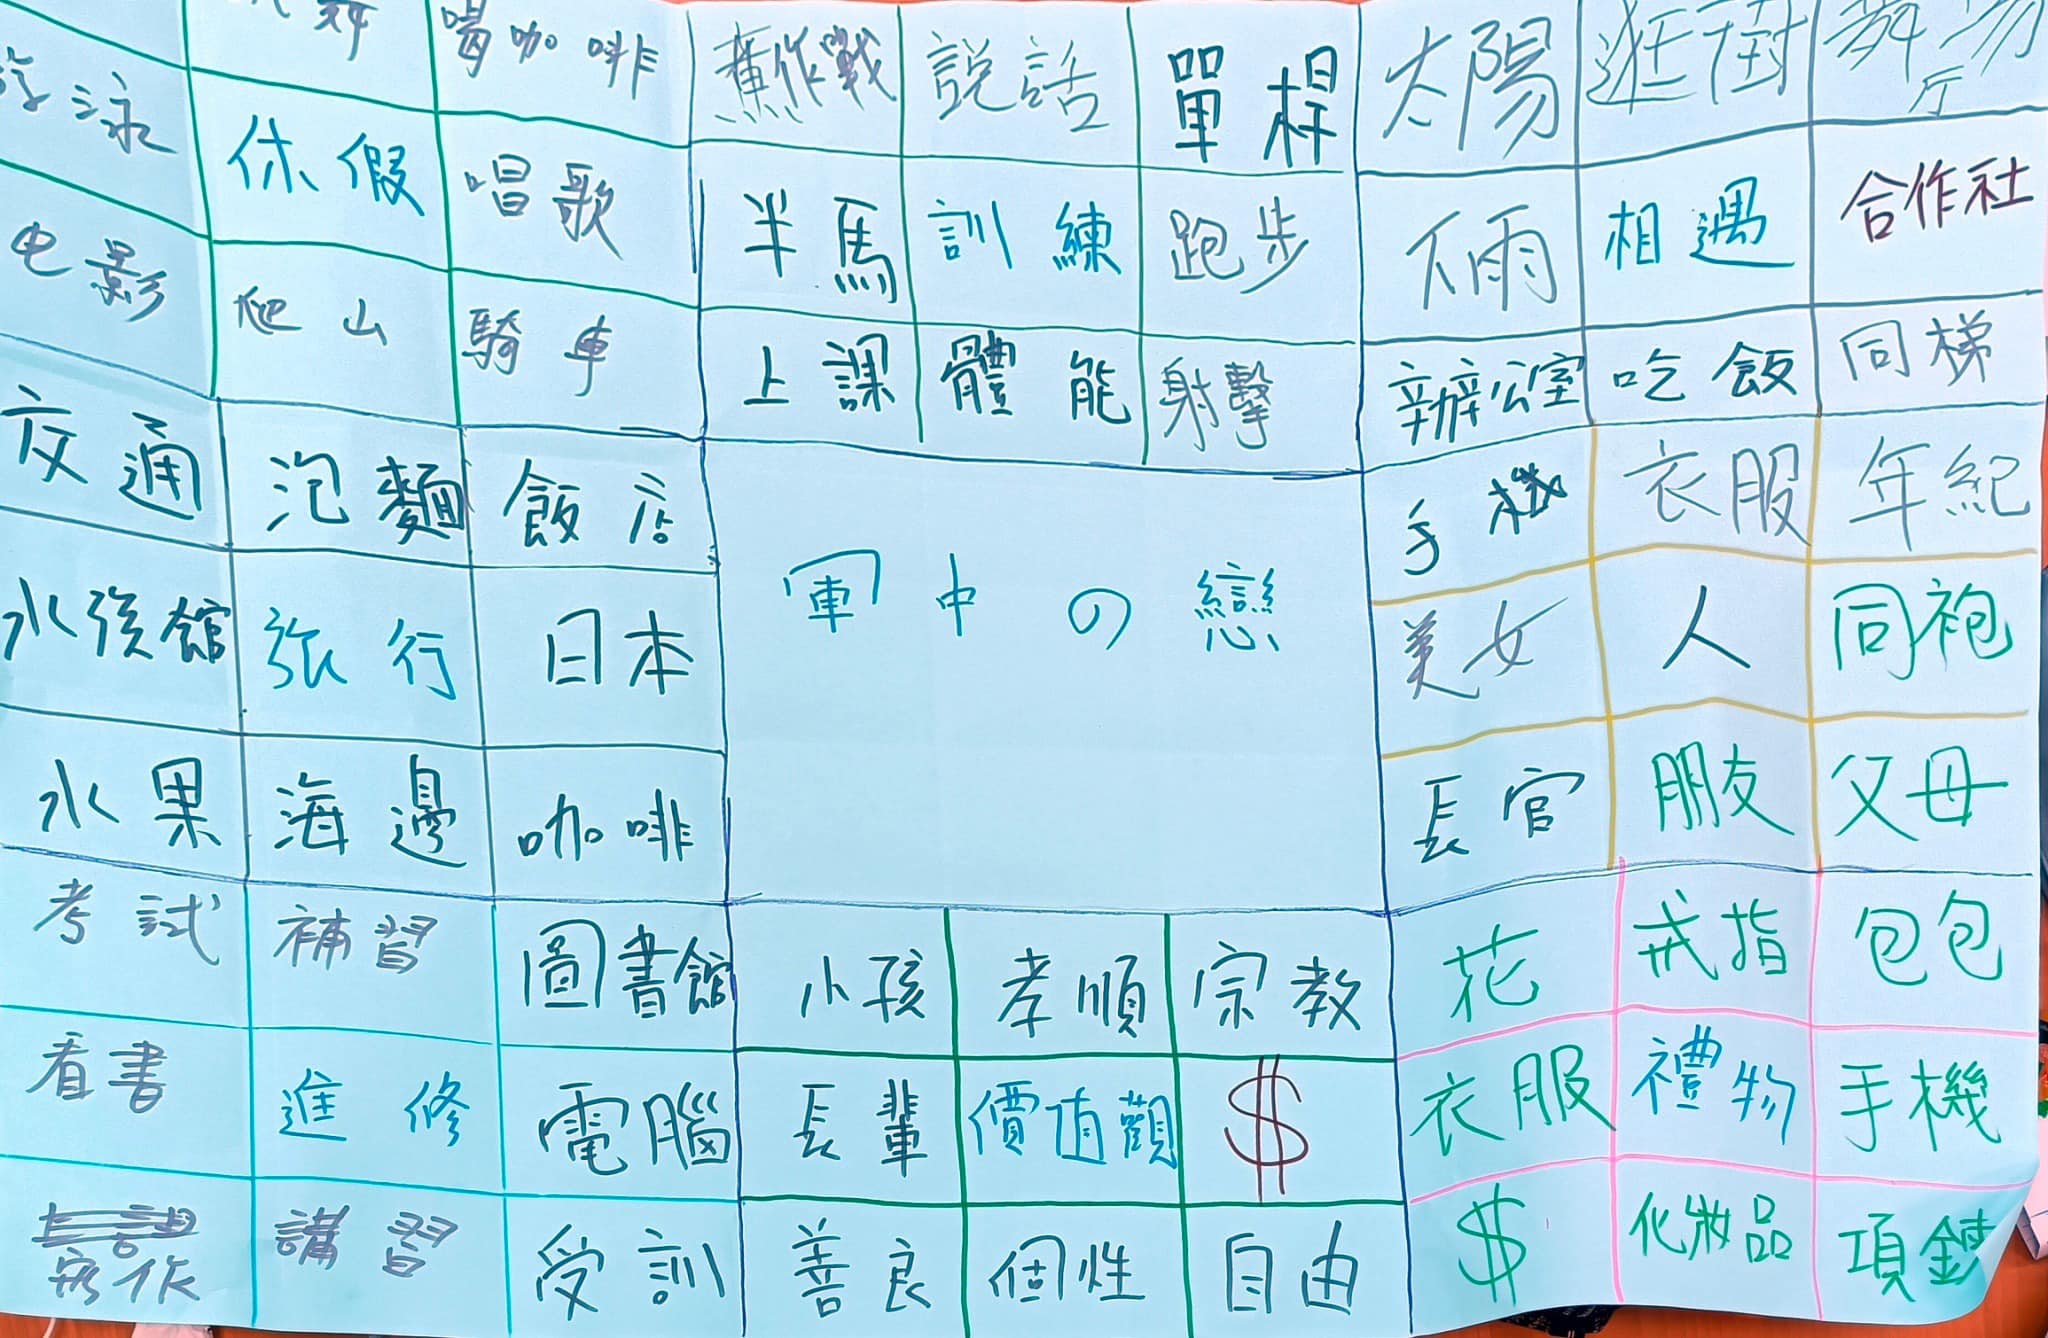 喝咖啡 作戰 説話 單槓 太陽 逛街
泳 休假 唱歌 半馬 訓練 跑步 下雨 相遇 合作社
电影 爬山 騎車 上課 體能 射擊 辦公室 吃飯 同梯
交通 泡麵 飯店 手機 衣服 年紀
水族館 旅行 日本 軍中の戀 美女 人 同袍
水果 海邊 咖啡 長官 朋友 父母
考試 補習 圖書館 小孩 孝順 宗教 花 戒指 包包
看書 進修 電腦 長輩 價值觀 $ 衣服 禮物 手機
講習 受訓 善良 個性 自由 $ 化妝品 項鍊